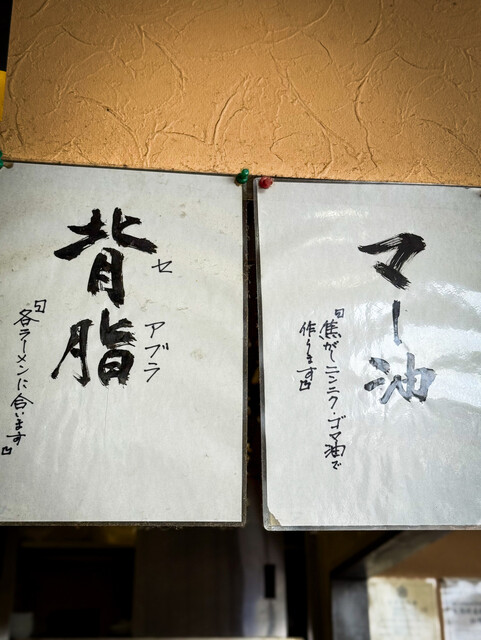 マー油
「焦がしニンニク・ゴマ油で
作ります」
背脂
セアブラ
「各ラーメンに合います」